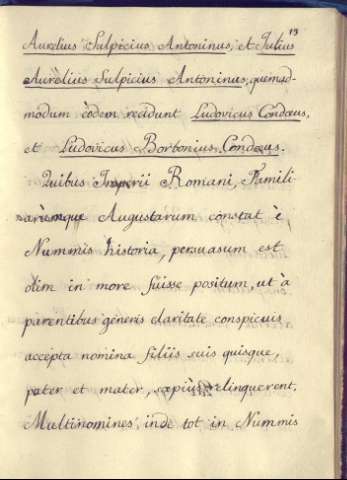 13
Aurelius Sulpicius Antoninus, et Julius
Aurelius Sulpicius Antoninus, quemad-
modum eòdem recidunt Ludovicus Condæus,
et Ludovicus Borbonius Condæus.
Quibus Imperii Romani, Famili-
arumque Augustarum constat è
Nummis historia, persuasum est
olim in more fuisse positum, ut à
parentibus generis claritate conspicuis
accepta nomina filiis suis quisque,
pater et mater, sæpiùs relinquerent.
Multinomines inde tot in Nummis